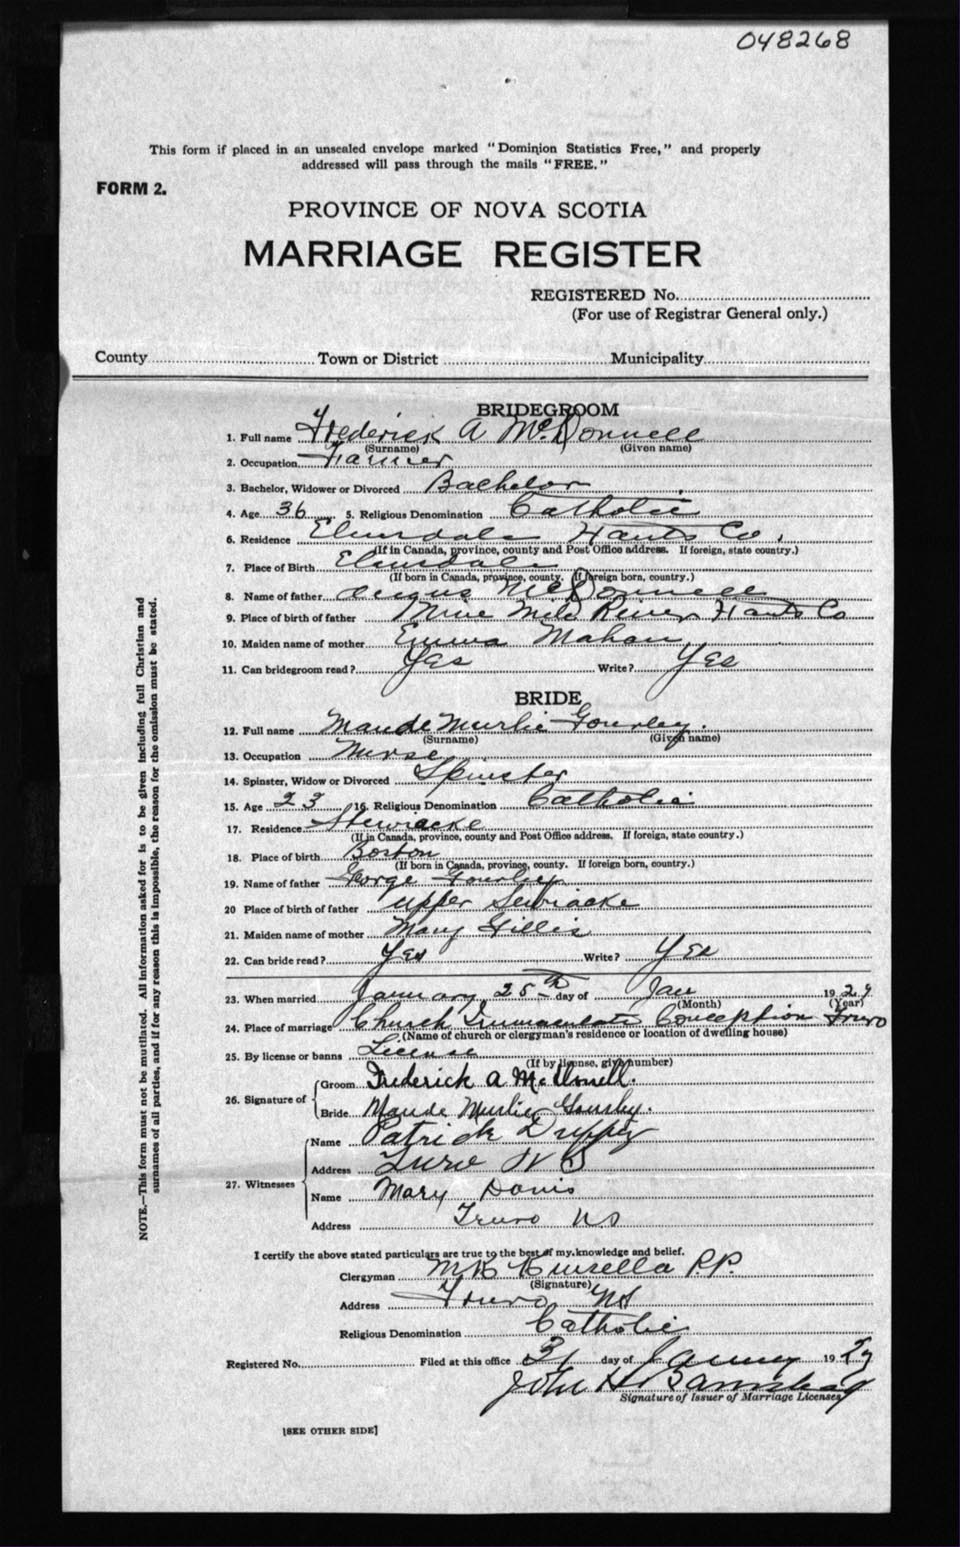 048268
This form if placed in an unsealed envelope marked "Dominion Statistics Free," and properly
addressed will pass through the mails "FREE."
FORM 2.
PROVINCE OF NOVA SCOTIA
MARRIAGE REGISTER
REGISTERED No.
(For use of Registrar General only.)
County Town or District Municipality
BRIDEGROOM
1. Full name Frederick A McDonnell
(Surname) (Given name)
2. Occupation Farmer
3. Bachelor, Widower or Divorced Bachelor
4. Age 36 5. Religious Denomination Catholic
6. Residence Elmsdale Hants Co.
(If in Canada, province, county and Post Office address. If foreign, state country.)
7. Place of Birth Elmsdale
(If born in Canada, province, county. If foreign born, country.)
8. Name of father Angus McDonnell
9. Place of birth of father Nine Mile River Hants Co
10. Maiden name of mother Emma Mahan
11. Can bridegroom read? Yes Write? Yes
BRIDE
12. Full name Maude Murlie Gourley.
(Surname) (Given name)
13. Occupation Nurse
14. Spinster, Widow or Divorced Spinster
15. Age 23 16. Religious Denomination Catholic
17. Residence Stewiacke
(If in Canada, province, county and Post Office address. If foreign, state country.)
18. Place of birth Boston
(If born in Canada, province, county. If foreign born, country.)
19. Name of father George Gourley
20 Place of birth of father Upper Stewiacke
21. Maiden name of mother Mary Gillis
22. Can bride read? Yes Write? Yes
23. When married January 25th day of Jan 1929
(Month) (Year)
24. Place of marriage Church Immaculate Conception Truro
(Name of church or clergyman's residence or location of dwelling house)
25. By license or banns License
(If by license, give number)
26. Signature of
Groom Frederick A McDonell.
Bride Maude Murlie Gourley.
27. Witnesses
Name Patrick
Address Truro N S
Name Mary Davis
Address Truro NS
I certify the above stated particulars are true to the best of my knowledge and belief.
Clergyman Kinsella P.P.
(Signature)
Address Truro NS
Religious Denomination Catholic
Registered No. Filed at this office 31 day of January 1929
John H
Signature of Issuer of Marriage Licenses
[SEE OTHER SIDE]
NOTE.—This form must not be mutilated. All information asked for is to be given including full Christian and
surnames of all parties, and if for any reason this is impossible, the reason for the omission must be stated.